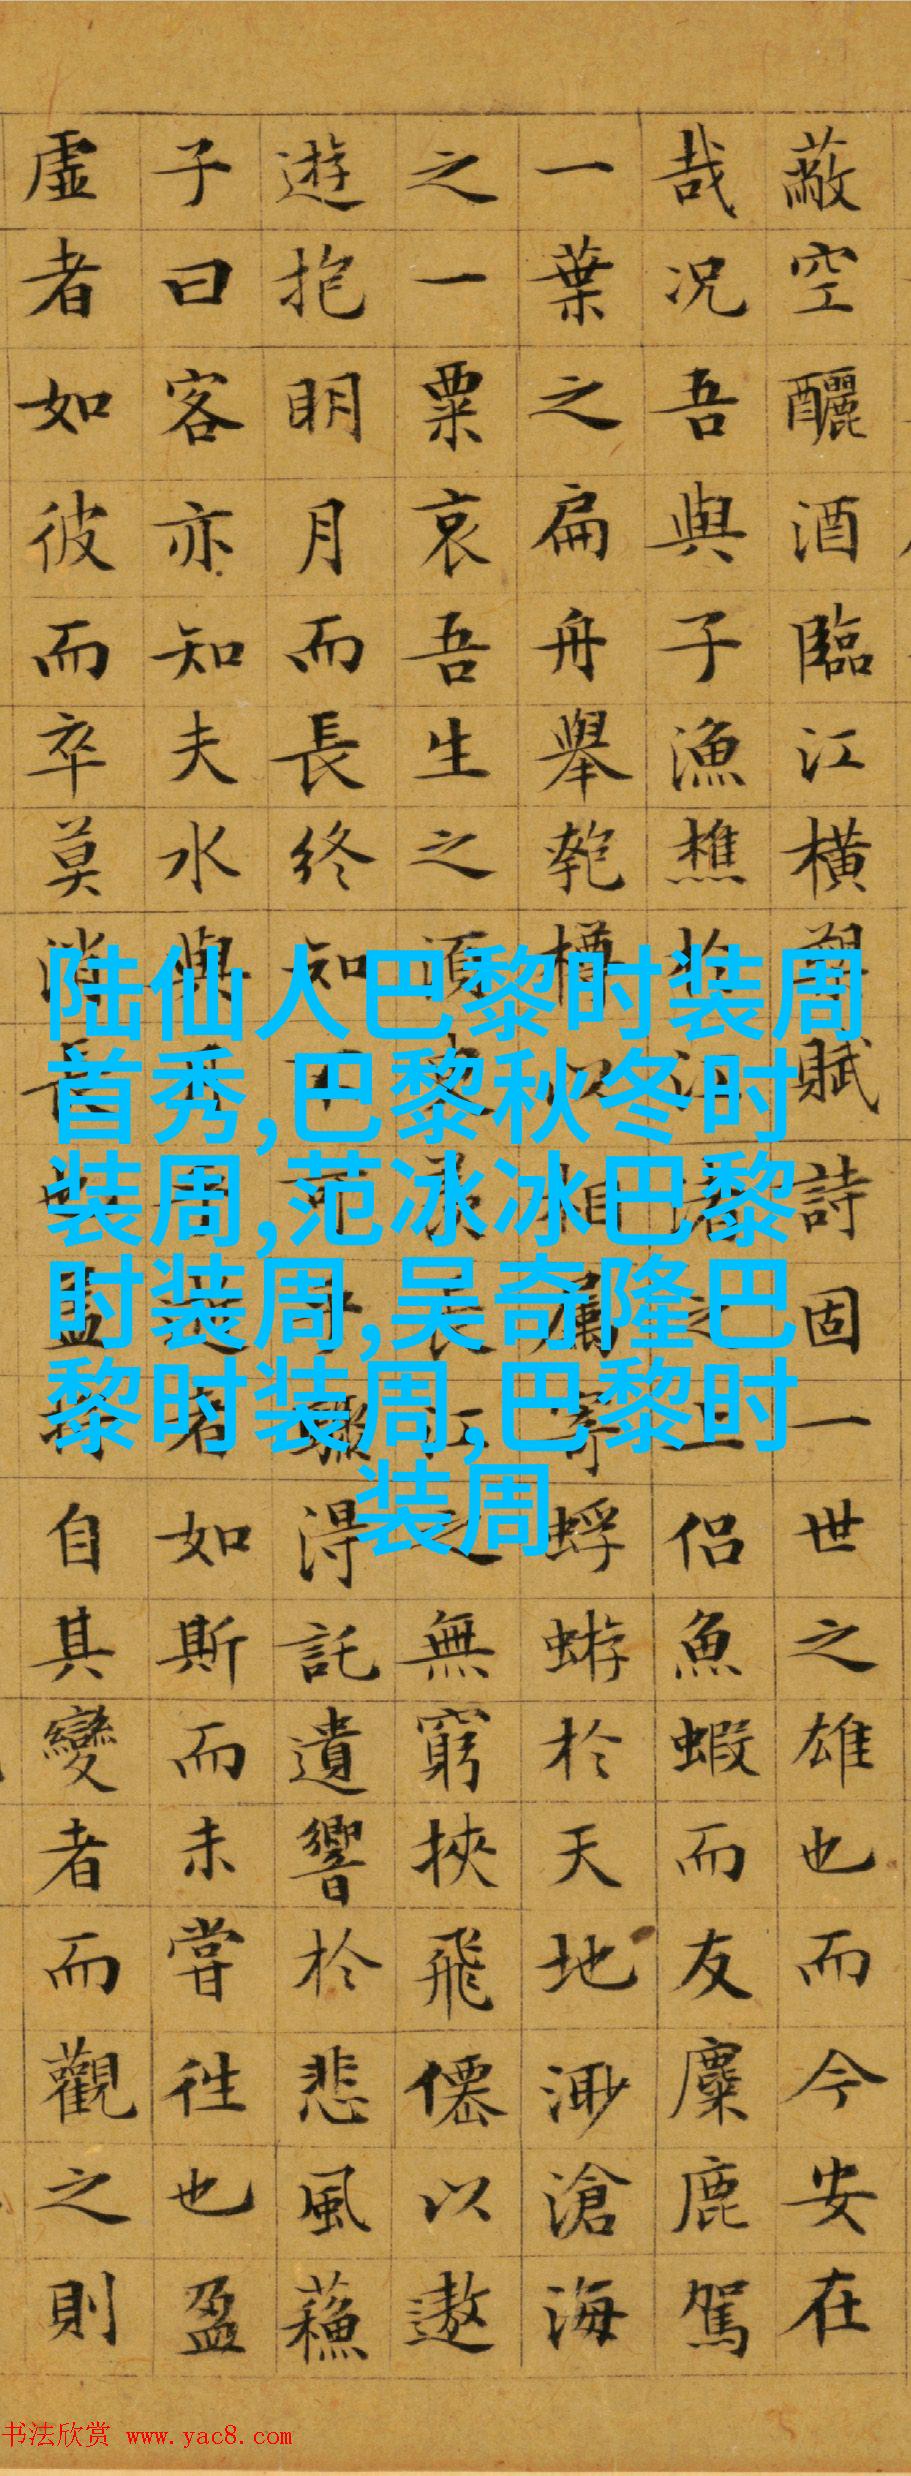 蔽空釃酒臨江橫槊賦詩固一世之雄也而今安在
哉况吾與子漁樵於江渚之上侶魚蝦而友麋鹿駕
一葉之扁舟舉匏樽以相屬寄蜉蝣於天地渺滄海
之一粟哀吾生之須臾羨長江之無窮挾飛僊以遨
遊抱明月而長終知不可乎驟得託遺響於悲風蘇
子曰客亦知夫水與月乎逝者如斯而未嘗往也盈
虛者如彼而卒莫消長也蓋將自其變者而觀之則
陆仙人巴黎时装周
首秀,巴黎秋冬时
装周,范冰冰巴黎
时装周,吴奇隆巴
黎时装周,巴黎时
装周
书法欣赏 www.yac8.com